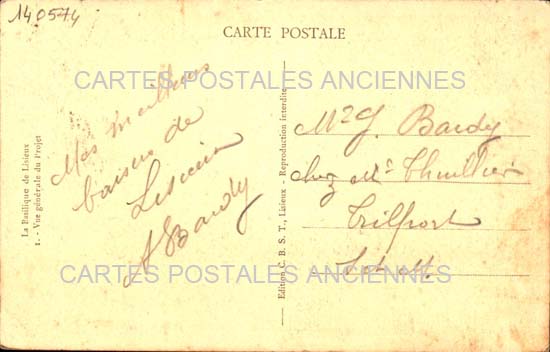 140574
CARTE POSTALE
CARTES POSTALES ANCIENNES
La Basilique de Lisieux
1. - Vue générale du Projet
Mes meilleurs
baisers de
Lisieux
A Bardy
Edition C. B. S. T., Lisieux - Reproduction interdite
Mr G. Bardy
chez Mr Thuillier
Trilport
S et M.
CARTES POSTALES ANCIENNES